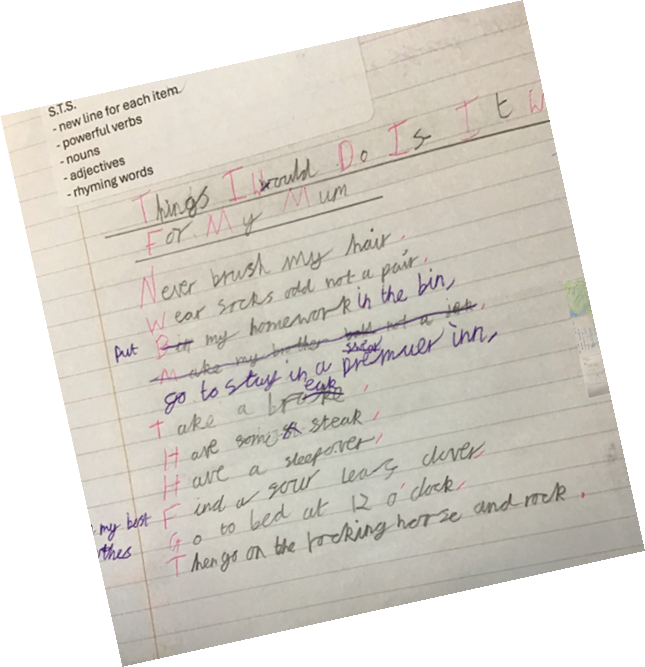 S.T.S.
- new line for each item.
- powerful verbs
- nouns
- adjectives
- rhyming words
Things I Would Do Is I t W
For My Mum
Never brush my hair.
Wear socks odd not a pair.
Put my homework in the bin,
Make my brother bald not a jon.
go to stay in a premuer inn,
Take a break,
Have some steak,
Have a sleepover,
Find a four leaf clover
Go to bed at 12 o'clock,
Then go on the rocking horse and rock.
my best
thes